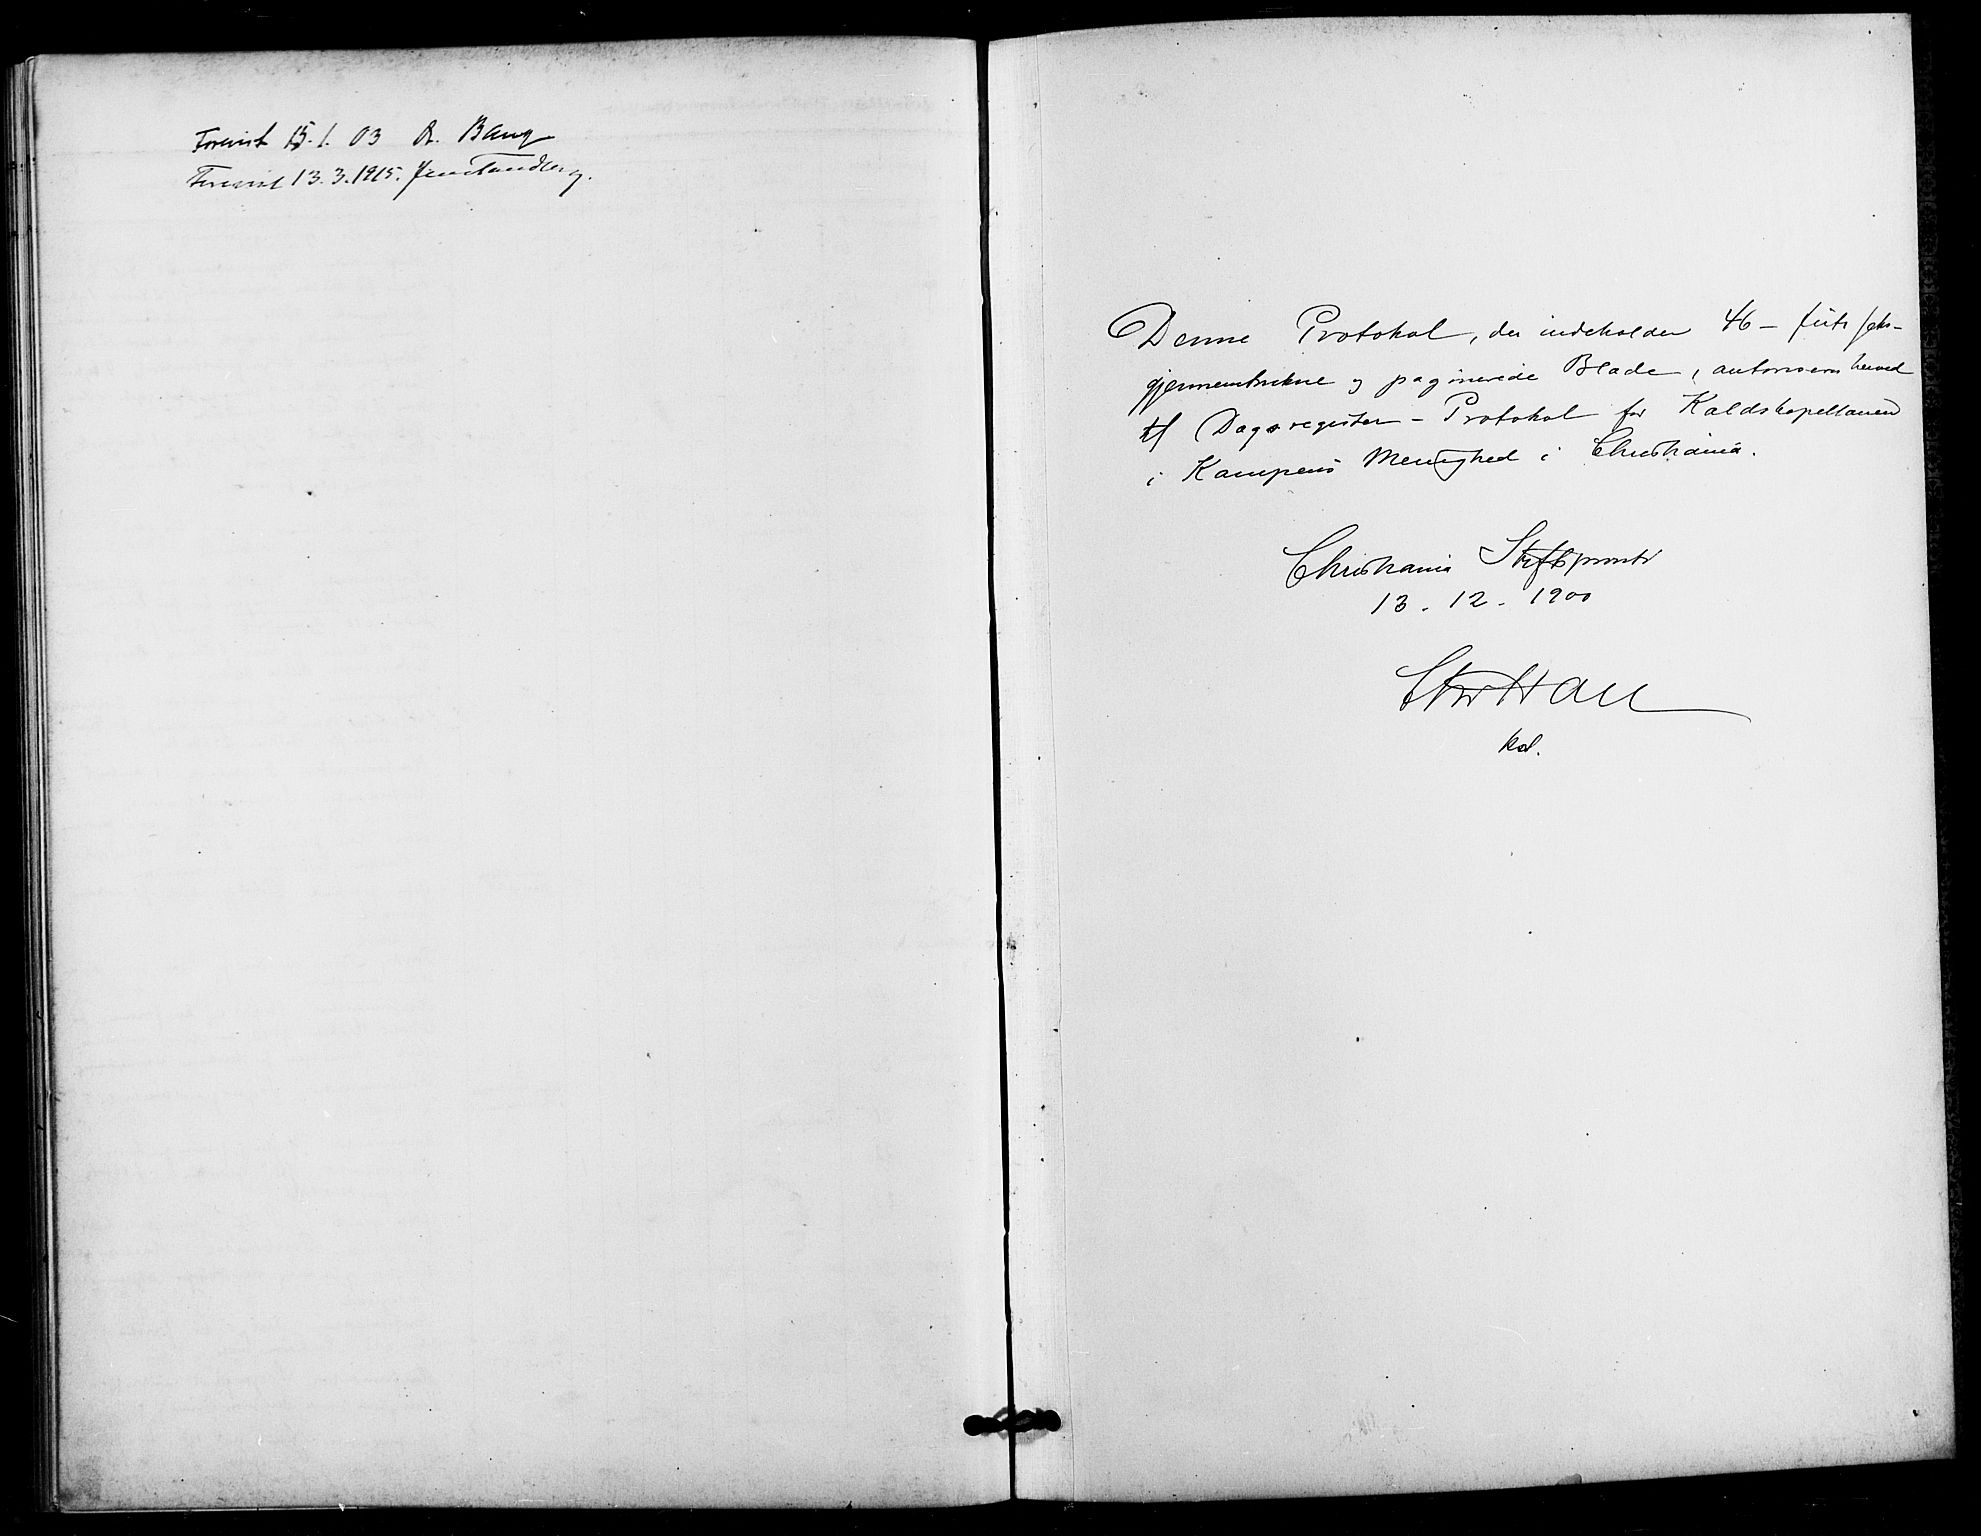 Forevist 15.1.03 A. Bang
Forevist 13.3.1915. Jens Tandberg.
Denne Protokol, der indeholder 46 – fürti seks –
gjennemtrukne og paginerede Blade, autoriseres herved
til Dagsregister – Protokol for Kaldskapellanen
i Kampens Menighed i Christiania.
Christiania Stiftsprovsti
13 . 12 . 1900